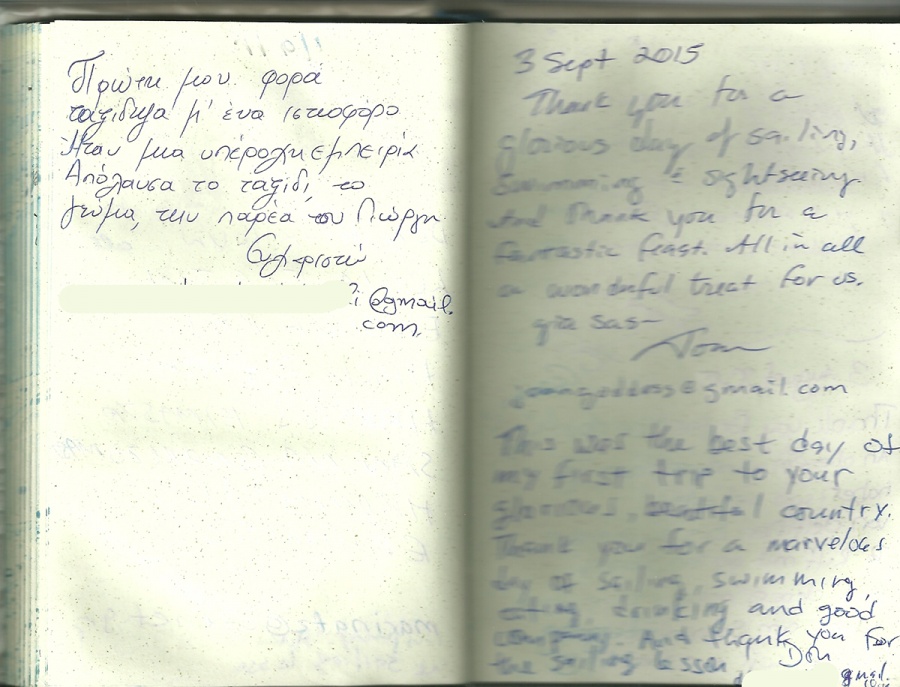 Πρώτη μου φορά
ταξίδεψα μ' ένα ιστιοφόρο
Ήταν μια υπέροχη εμπειρία
Απόλαυσα το ταξίδι, το
γεύμα, την παρέα του Γιώργη
Ευχαριστώ
@gmail.
com
3 Sept 2015
Thank you for a
glorious day of sailing,
swimming & sightseeing
And Thank you for a
fantastic feast. All in all
a wonderful treat for us.
gia sas—
Tom
@gmail.com
This was the best day of
my first trip to your
glorious, country.
Thank you for a marvelous
day of sailing, swimming,
eating, drinking and good
company. And thank you for
the sailing lesson!
Don
gmail.
com